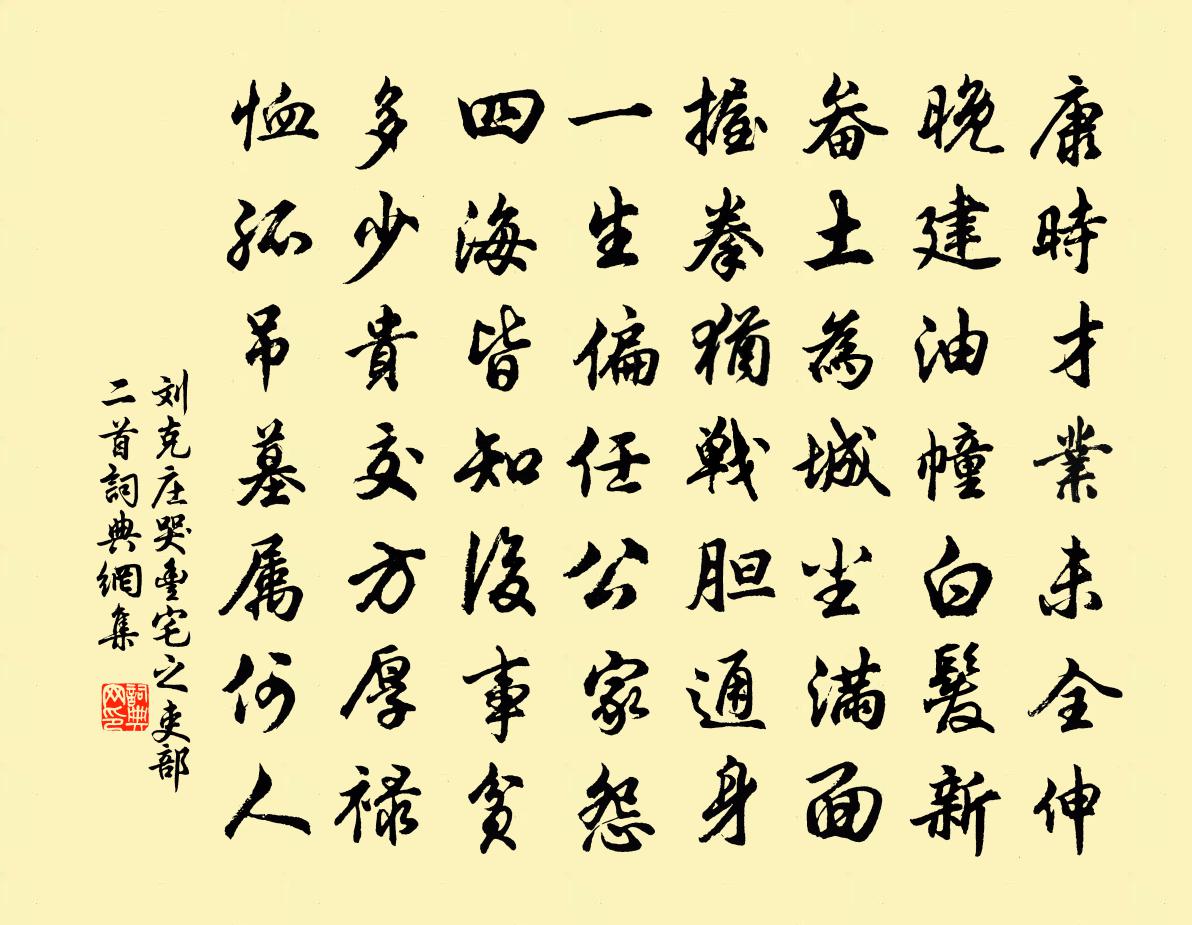 康時才業未全伸
晚建油幢白髮新
畚土為城尘满面
握拳猶戰胆通身
一生偏任公家怨
四海皆知後事貧
多少貴交方厚禄
恤孤吊墓属何人
刘克庄哭豐宅之吏部
二首詞典網集
詞典网印